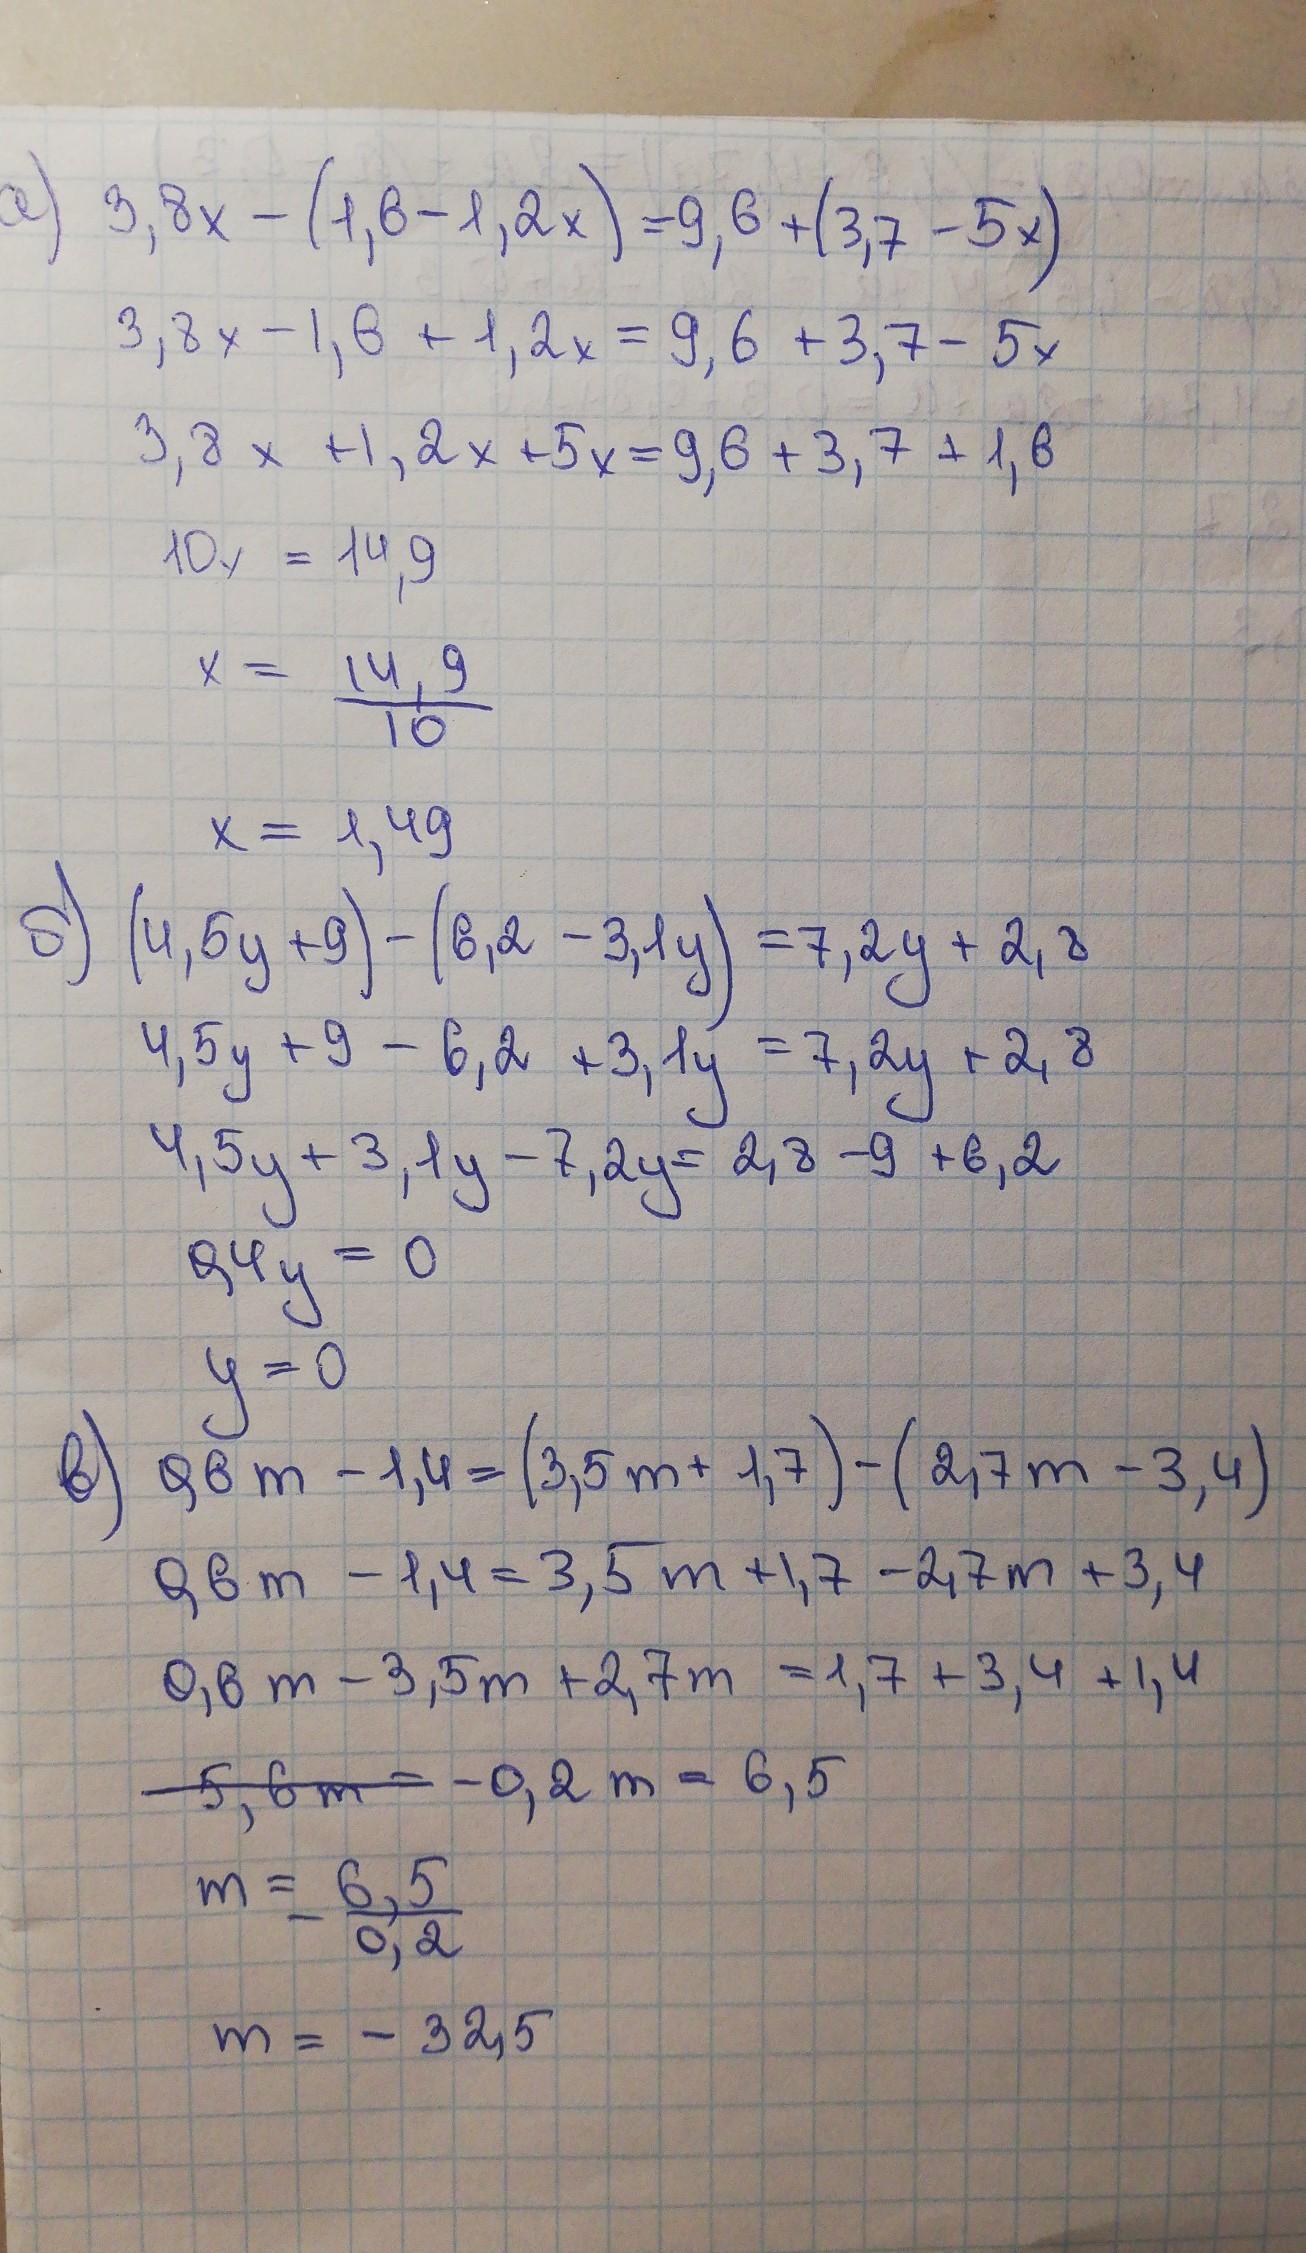 а) 3,8x - (1,6 - 1,2x) = 9,6 + (3,7 - 5x)
3,8x - 1,6 + 1,2x = 9,6 + 3,7 - 5x
3,8x + 1,2x + 5x = 9,6 + 3,7 + 1,6
10x = 14,9
x = 14,9/10
x = 1,49
б) (4,5y + 9) - (6,2 - 3,1y) = 7,2y + 2,8
4,5y + 9 - 6,2 + 3,1y = 7,2y + 2,8
4,5y + 3,1y - 7,2y = 2,8 - 9 + 6,2
0,4y = 0
y = 0
в) 0,6m - 1,4 = (3,5m + 1,7) - (2,7m - 3,4)
0,6m - 1,4 = 3,5m + 1,7 - 2,7m + 3,4
0,6m - 3,5m + 2,7m = 1,7 + 3,4 + 1,4
5,6m = -0,2m = 6,5
m = - 6,5/0,2
m = - 32,5